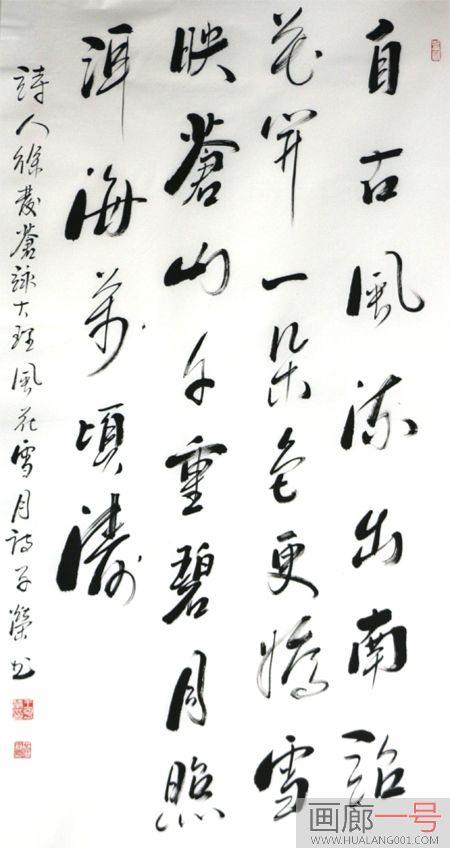 自古風流出南詔
花開一朵色更嬌雪
映蒼山千重碧月照
洱海萬頃濤
詩人徐發蒼詠大理風花雪月詩子榮书
画廊一号
WWW.HUALANG001.COM